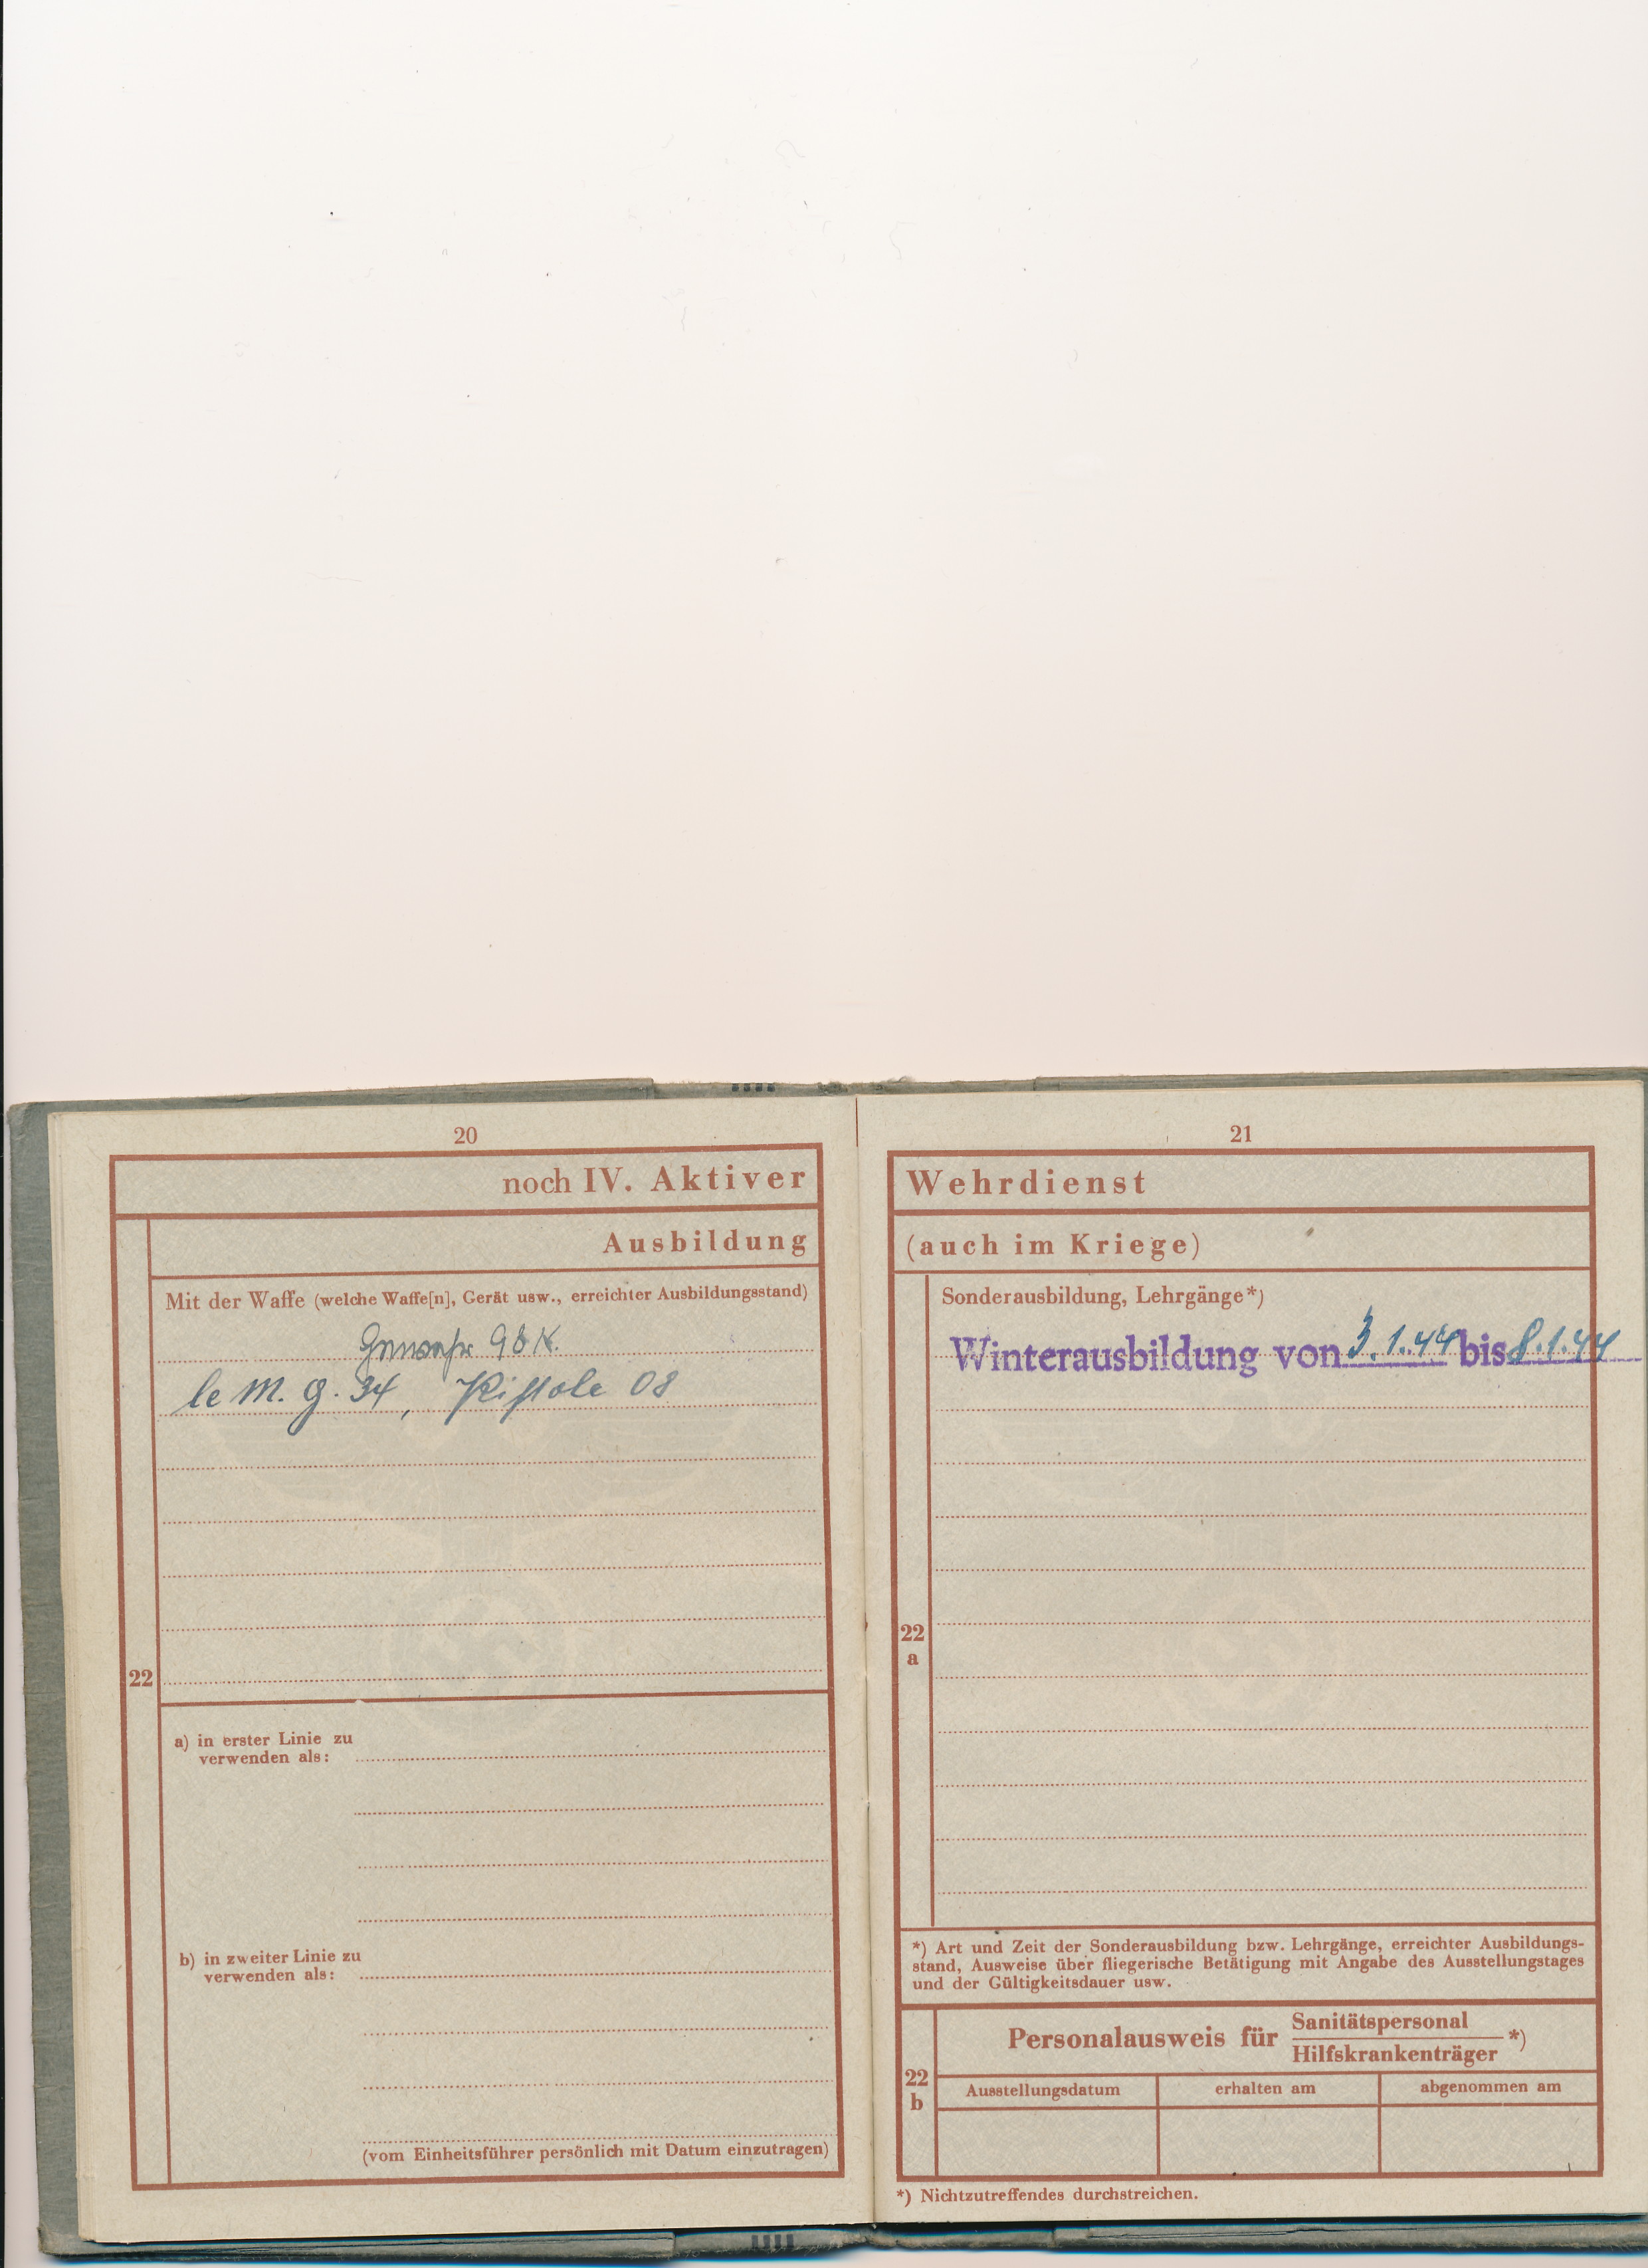 20
noch IV. Aktiver
Ausbildung
Mit der Waffe (welche Waffe[n], Gerät usw., erreichter Ausbildungsstand)
Gewehr 98 K.
le M. G. 34, Pistole 08
22
a) in erster Linie zu
verwenden als:
b) in zweiter Linie zu
verwenden als:
(vom Einheitsführer persönlich mit Datum einzutragen)
21
Wehrdienst
(auch im Kriege)
Sonderausbildung, Lehrgänge*)
Winterausbildung von 3.1.44 bis 8.1.44
22
a
*) Art und Zeit der Sonderausbildung bzw. Lehrgänge, erreichter Ausbildungs-
stand, Ausweise über fliegerische Betätigung mit Angabe des Ausstellungstages
und der Gültigkeitsdauer usw.
22
b
Personalausweis für Sanitätspersonal *)
Hilfskrankenträger
Ausstellungsdatum erhalten am abgenommen am
*) Nichtzutreffendes durchstreichen.